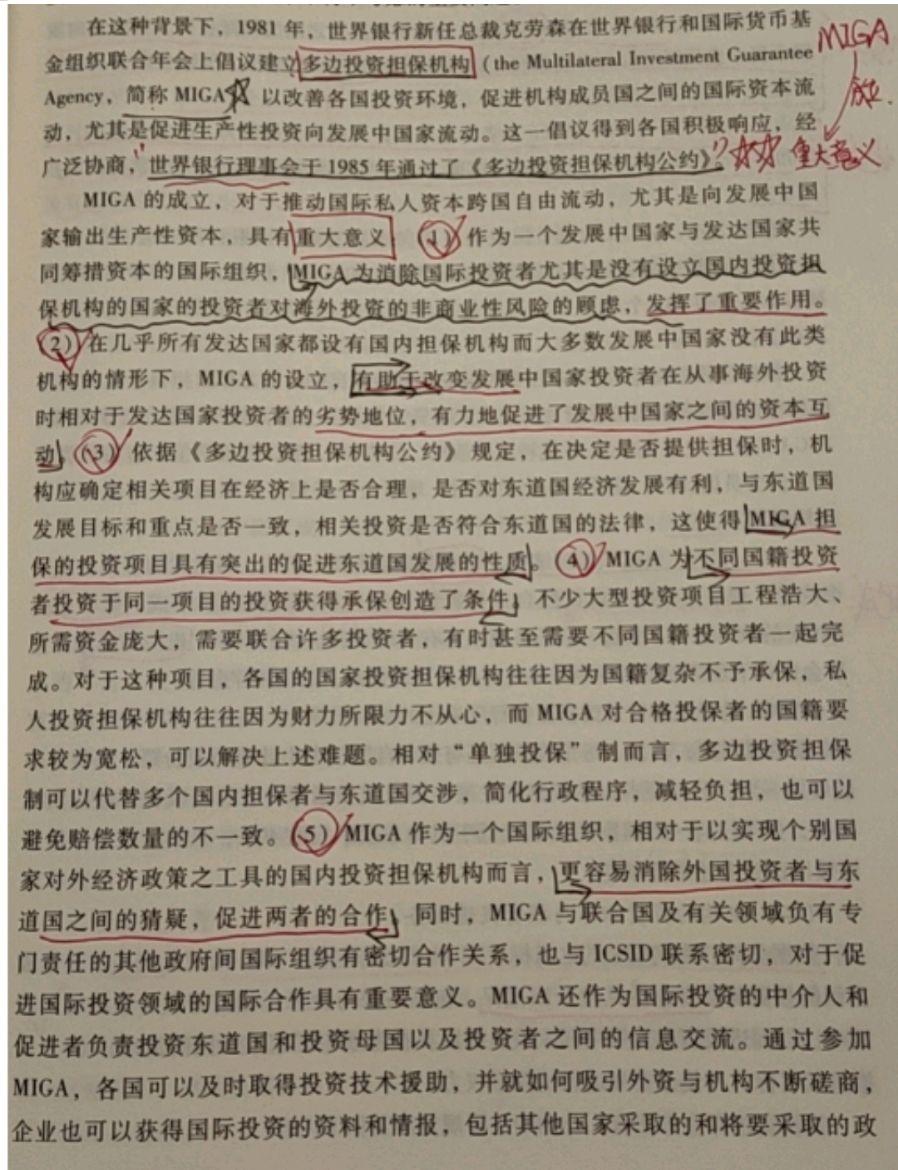 在这种背景下，1981 年，世界银行新任总裁克劳森在世界银行和国际货币基
金组织联合年会上倡议建立多边投资担保机构（the Multilateral Investment Guarantee
MIGA
Agency，简称 MIGA 以改善各国投资环境，促进机构成员国之间的国际资本流
动，尤其是促进生产性投资向发展中国家流动。这一倡议得到各国积极响应，经
广泛协商，世界银行理事会于 1985 年通过了《多边投资担保机构公约》。
重大意义
MIGA 的成立，对于推动国际私人资本跨国自由流动，尤其是向发展中国
家输出生产性资本，具有重大意义 （1）作为一个发展中国家与发达国家共
同筹措资本的国际组织，MIGA 为消除国际投资者尤其是没有设立国内投资担
保机构的国家的投资者对海外投资的非商业性风险的顾虑，发挥了重要作用。
（2）在几乎所有发达国家都设有国内担保机构而大多数发展中国家没有此类
机构的情形下，MIGA 的设立，有助于改变发展中国家投资者在从事海外投资
时相对于发达国家投资者的劣势地位，有力地促进了发展中国家之间的资本互
动 （3）依据《多边投资担保机构公约》规定，在决定是否提供担保时，机
构应确定相关项目在经济上是否合理，是否对东道国经济发展有利，与东道国
发展目标和重点是否一致，相关投资是否符合东道国的法律，这使得 MIGA 担
保的投资项目具有突出的促进东道国发展的性质。（4）MIGA 为不同国籍投资
者投资于同一项目的投资获得承保创造了条件 不少大型投资项目工程浩大、
所需资金庞大，需要联合许多投资者，有时甚至需要不同国籍投资者一起完
成。对于这种项目，各国的国家投资担保机构往往因为国籍复杂不予承保，私
人投资担保机构往往因为财力所限力不从心，而 MIGA 对合格投保者的国籍要
求较为宽松，可以解决上述难题。相对“单独投保”制而言，多边投资担保
制可以代替多个国内担保者与东道国交涉，简化行政程序，减轻负担，也可以
避免赔偿数量的不一致。（5）MIGA 作为一个国际组织，相对于以实现个别国
家对外经济政策之工具的国内投资担保机构而言，更容易消除外国投资者与东
道国之间的猜疑，促进两者的合作 同时，MIGA 与联合国及有关领域负有专
门责任的其他政府间国际组织有密切合作关系，也与 ICSID 联系密切，对于促
进国际投资领域的国际合作具有重要意义。MIGA 还作为国际投资的中介人和
促进者负责投资东道国和投资母国以及投资者之间的信息交流。通过参加
MIGA，各国可以及时取得投资技术援助，并就如何吸引外资与机构不断磋商，
企业也可以获得国际投资的资料和情报，包括其他国家采取的和将要采取的政